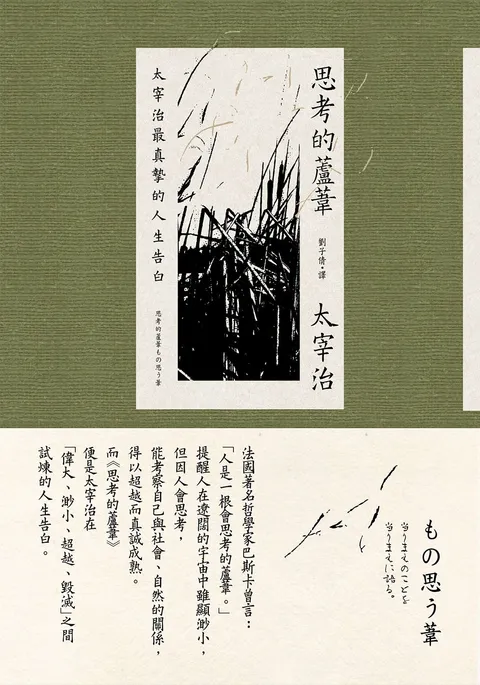 思考的蘆葦
劉子倩・譯
太宰治
太宰治最真摯的人生告白
思考的蘆葦もの思う葦
もの思う葦
当りまえのことを
当りまえに語る。
法國著名哲學家巴斯卡曾言:
「人是一根會思考的蘆葦。」
提醒人在遼闊的宇宙中雖顯渺小,
但因人會思考,
能考察自己與社會、自然的關係,
得以超越而真誠成熟。
而《思考的蘆葦》
便是太宰治在
「偉大、渺小、超越、毀滅」之間
試煉的人生告白。